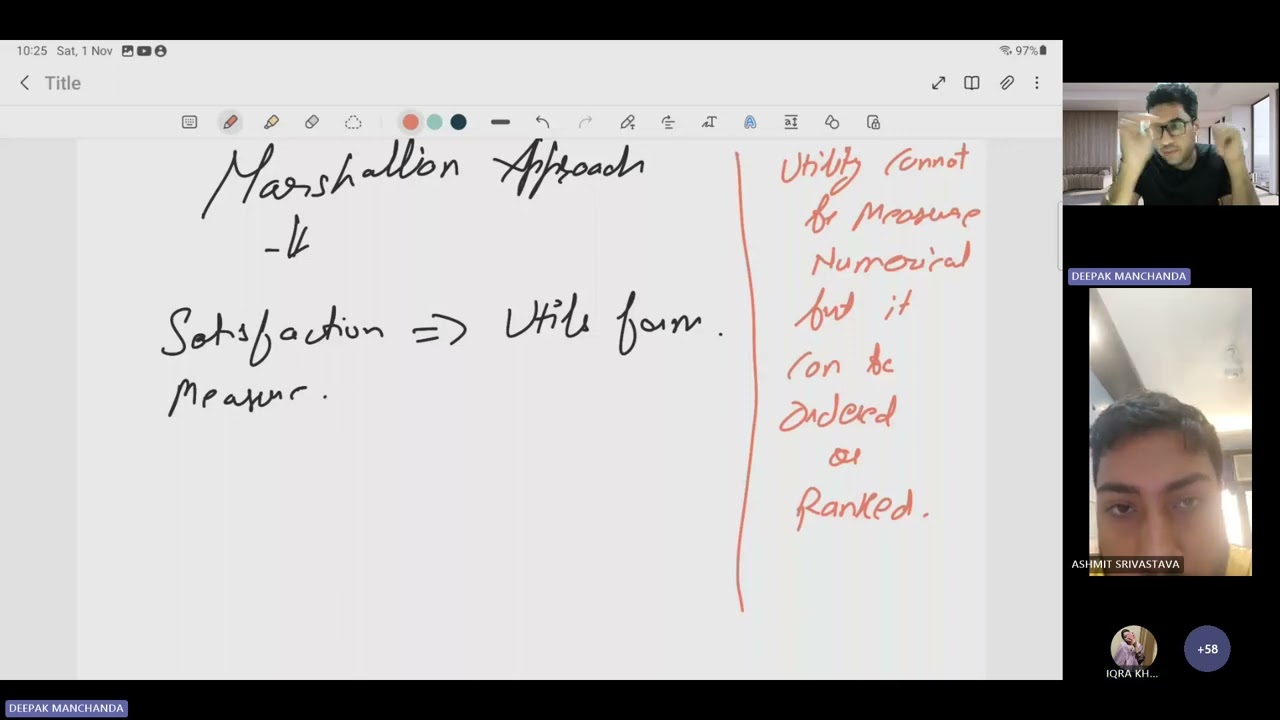 10:25 Sat, 1 Nov 97%
Title
Marshallion Approach
Satisfaction => Utils form.
Measure.
Utility cannot
be Measure
Numerical
but it
can be
ordered
or
Ranked.
DEEPAK MANCHANDA
ASHMIT SRIVASTAVA
IQRA KH...
+58
DEEPAK MANCHANDA